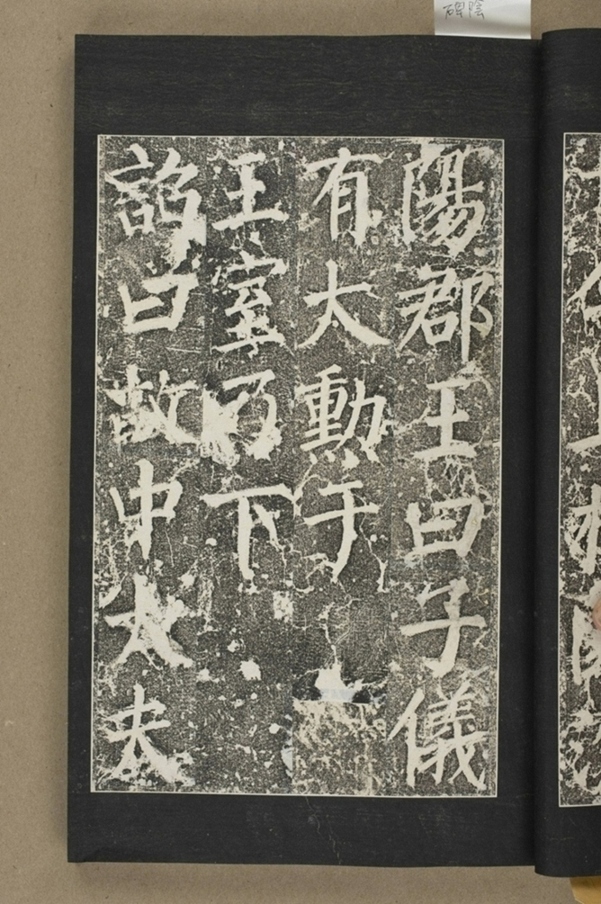 陽郡王曰子儀
有大勳于
王室乃下
詔曰故中大夫